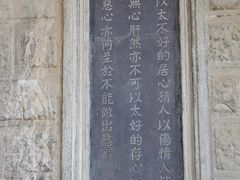 以太不好的居心猜人以傷情人
無心肝然亦不可以太好的存心
慈心亦何至於不能做出惡